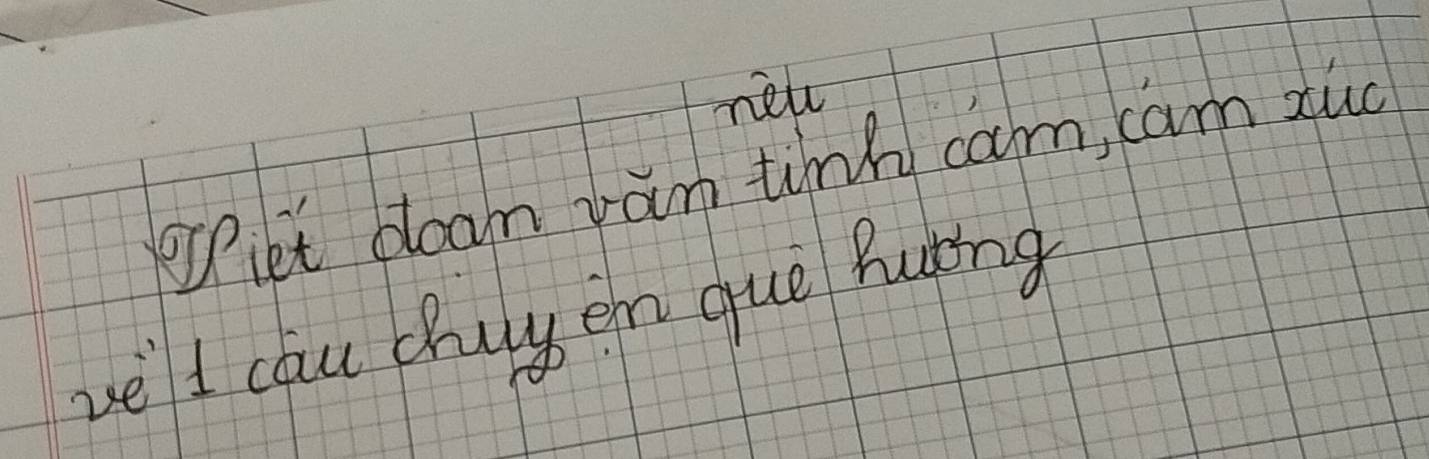 nêu
Viết đoạn văn tình cảm, cảm xúc
về 1 câu chuyện quê hương